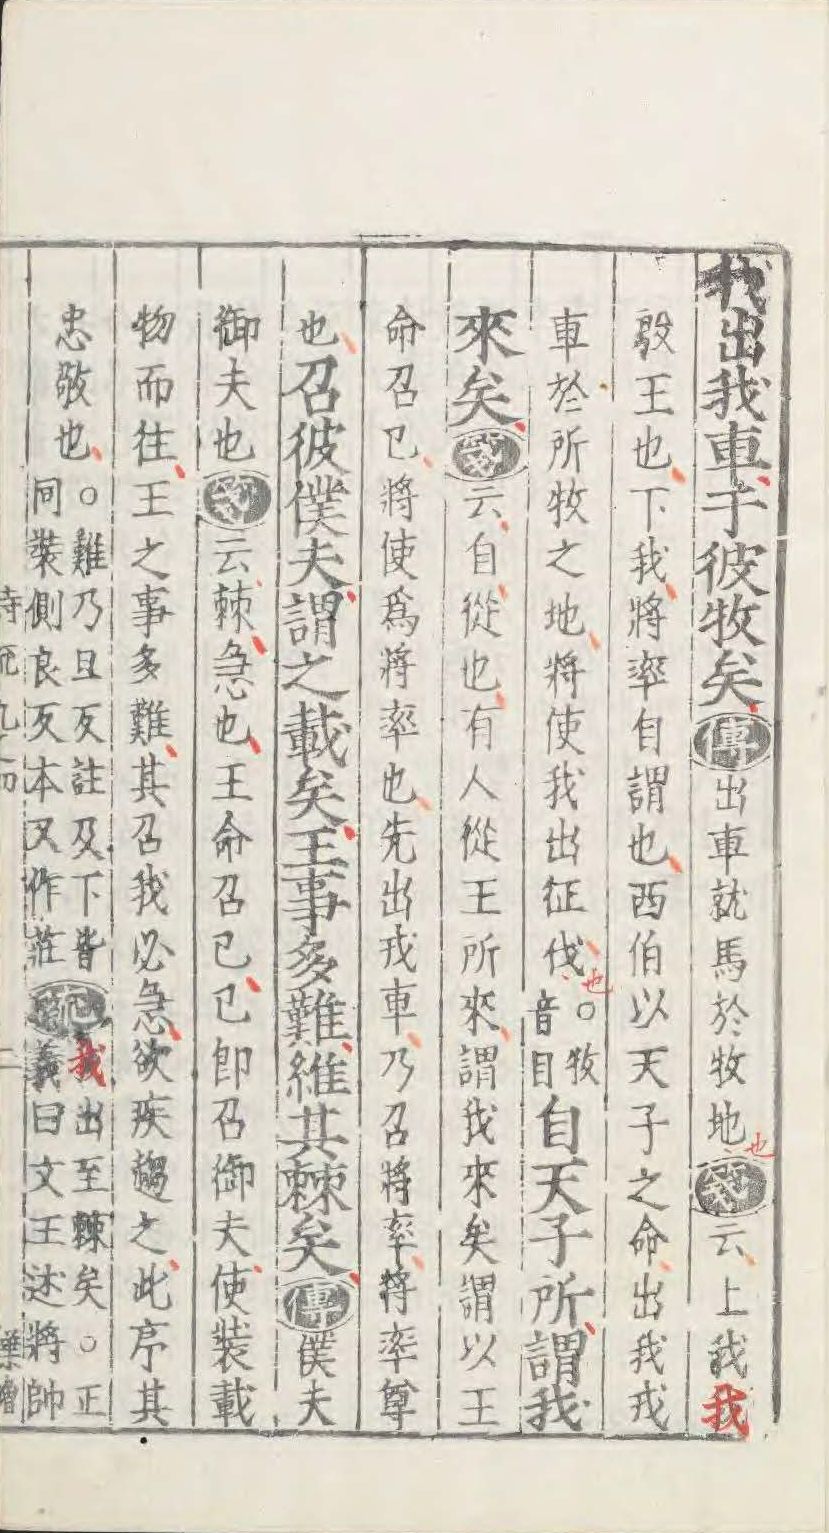 我出我車于彼牧矣傳出車就馬於牧地也箋云上我我
殷王也下我將率自謂也西伯以天子之命出我戎
車於所牧之地將使我出征伐也○牧音目自天子所謂我
來矣箋云自從也有人從王所來謂我來矣謂以王
命召已將使爲將率也先出戎車乃召將率將率尊
也召彼僕夫謂之載矣王事多難維其棘矣傳僕夫
御夫也箋云棘急也王命召已已即召御夫使裝載
物而往王之事多難其召我必急欲疾趨之此序其
忠敬也○難乃旦反註及下皆同裝側良反本又作莊
我出至棘矣○正義曰文王述將帥